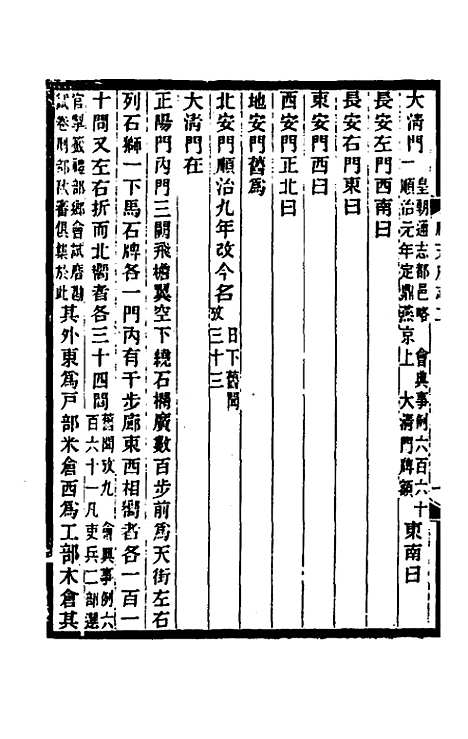 大淸門一順治元年定鼎燕京上大淸門牌額皇朝通志都邑略會典事例六百六十東南曰
長安左門西南曰
長安右門東曰
東安門西曰
西安門正北曰
地安門舊爲
北安門順治九年改今名日下舊聞攷三十三
大淸門在
正陽門內門三闕飛檐翼空下繞石欄廣數百步前爲天街左右
列石獅一下馬石牌各一門內有千步廊東西相嚮者各一百一
十間又左右折而北嚮者各三十四間舊聞攷九會典事例六百六十一凡吏兵二部選
官掣籤禮部鄉會試磨勘試卷刑部秋審俱集於此其外東爲戶部米倉西爲工部木倉其